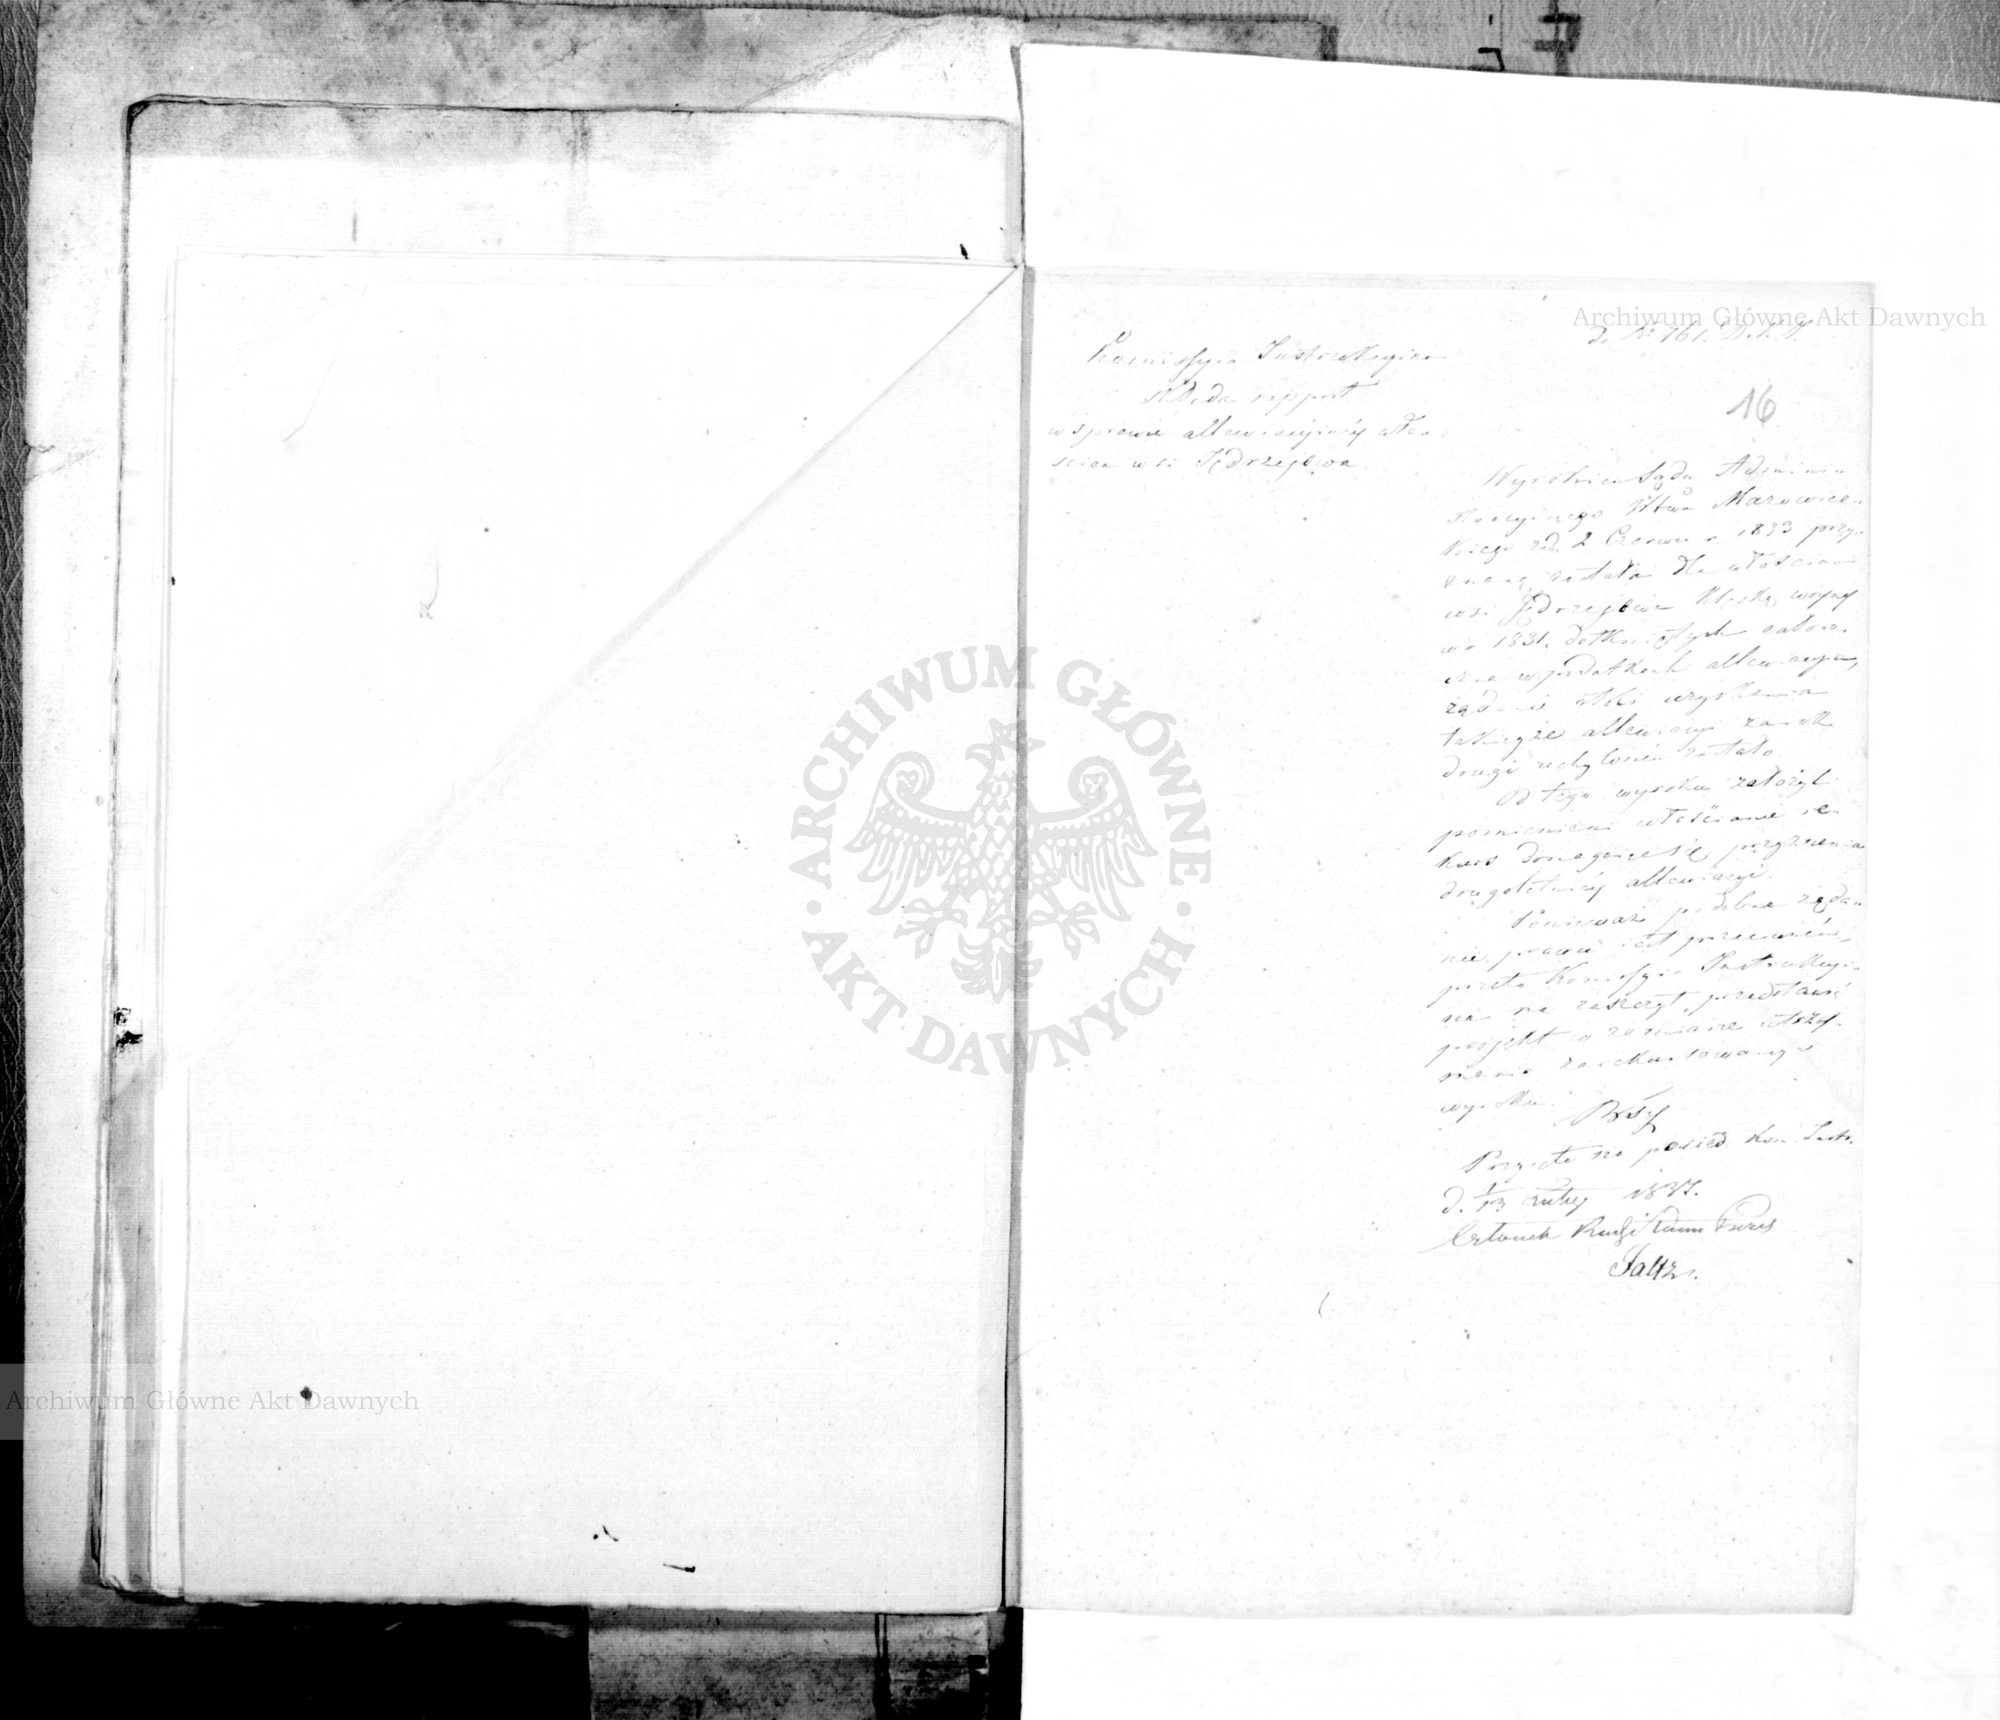 Archiwum Główne Akt Dawnych
do N. 761. D.
16
Kommissya Instrukcyina
składa rapport
w sprawie allewiacyinéy włos
scian wsi Jędrzejewa.
Wyrokiem Sądu Adminis
tracyinego Wtwa Mazowiec
kiego z d. 2 Czerwca r. 1833 przy
znaną została dla włościan
wsi Jędrzejewa klęską woyny
w r. 1831. dotkniętych całoro
czna w podatkach allewiacya,
żądanie zaś uzyskania
takieyże allewiacyi za rok
drugi uchylone zostało.
Od tego wyroku założyli
pomienieni włościanie re-
kurs domagaiąc się przyznania
drugoletniéy allewiacyi.
Ponieważ podobne żąda
nie prawu iest przeciwném,
przeto Kommissya Instrukcyi
na ma zaszczyt przedstawić
projekt w zamiarze utrzy-
mania zarekursowanego
wyroku.
Przyięto na posied. Kom. Instr.
d. 1/13 lutego 1837.
Członek Radzi Stanu Prezes
Faltz.
ARCHIWUM GŁÓWNE
AKT DAWNYCH
Archiwum Główne Akt Dawnych